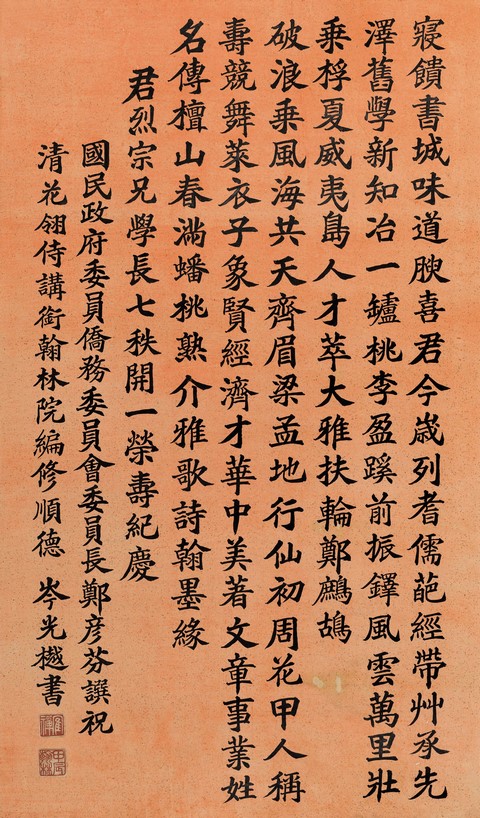 寢饋書城味道腴喜君今歲列耆儒葩經帶艸承先
澤舊學新知冶一鑪桃李盈蹊前振鐸風雲萬里壯
乘桴夏威夷島人才萃大雅扶輪鄭鷓鴣
破浪乘風海共天齊眉梁孟地行仙初周花甲人稱
壽競舞萊衣子象賢經濟才華中美著文章事業姓
名傳檀山春滿蟠桃熟介雅歌詩翰墨緣
君烈宗兄學長七秩開一榮壽紀慶
國民政府委員僑務委員會委員長鄭彦芬譔祝
清花翎侍講銜翰林院編修順德 岑光樾書